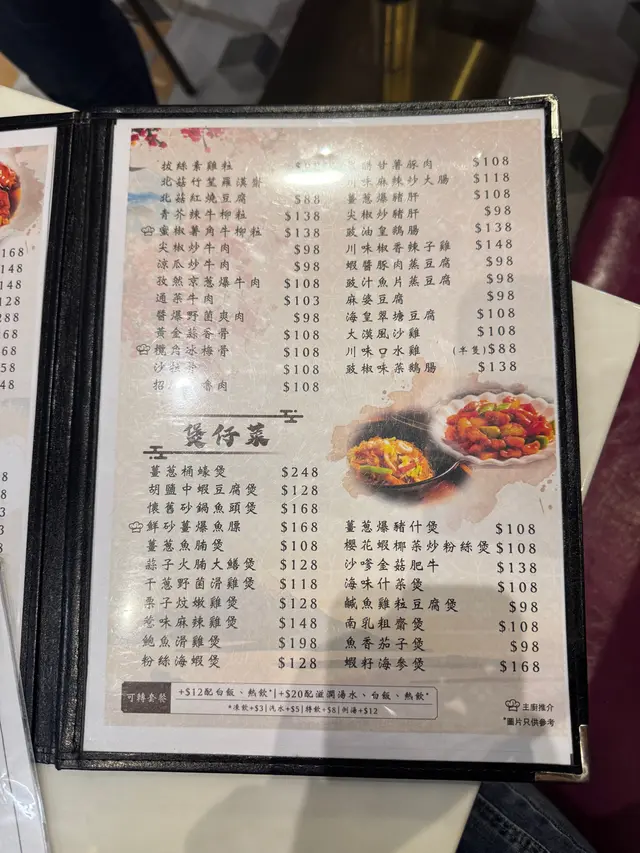 168
148
148
128
288
168
168
158
148
拔絲素雞粒
北菇竹笙羅漢齋
北菇紅燒豆腐 $88
青芥辣牛柳粒 $138
椒鹽薯角牛柳粒 $138
尖椒炒牛肉 $98
涼瓜炒牛肉 $98
孜然京蔥爆牛肉 $108
通菜牛肉 $103
醬爆野菌爽肉 $98
黃金蒜香骨 $108
欖角冰梅骨 $108
$108
$108
甘薯豚肉 $108
川味麻辣炒大腸 $118
薑蔥爆豬肝 $108
尖椒炒豬肝 $98
豉油皇鵝腸 $138
川味椒香辣子雞 $148
蝦醬豚肉蒸豆腐 $98
豉汁魚片蒸豆腐 $98
麻婆豆腐 $98
海皇翠塘豆腐 $108
大漠風沙雞 $108
川味口水雞 (半隻)$88
豉椒味菜鵝腸 $138
煲仔菜
薑蔥桶蠔煲 $248
胡鹽中蝦豆腐煲 $128
懷舊砂鍋魚頭煲 $168
鮮砂薑爆魚膘 $168
薑蔥魚腩煲 $108
蒜子火腩大鱔煲 $128
干蔥野菌滑雞煲 $118
栗子炆嫩雞煲 $128
惹味麻辣雞煲 $148
鮑魚滑雞煲 $198
粉絲海蝦煲 $128
薑蔥爆豬什煲 $108
櫻花蝦椰菜炒粉絲煲 $108
沙嗲金菇肥牛 $138
海味什菜煲 $108
鹹魚雞粒豆腐煲 $98
南乳粗齋煲 $108
魚香茄子煲 $98
蝦籽海參煲 $168
可轉套餐 +$12配白飯、熱飲*|+$20配滋潤湯水、白飯、熱飲*
*凍飲+$3|汽水+$5|特飲+$8|例湯+$12
主廚推介
*圖片只供參考